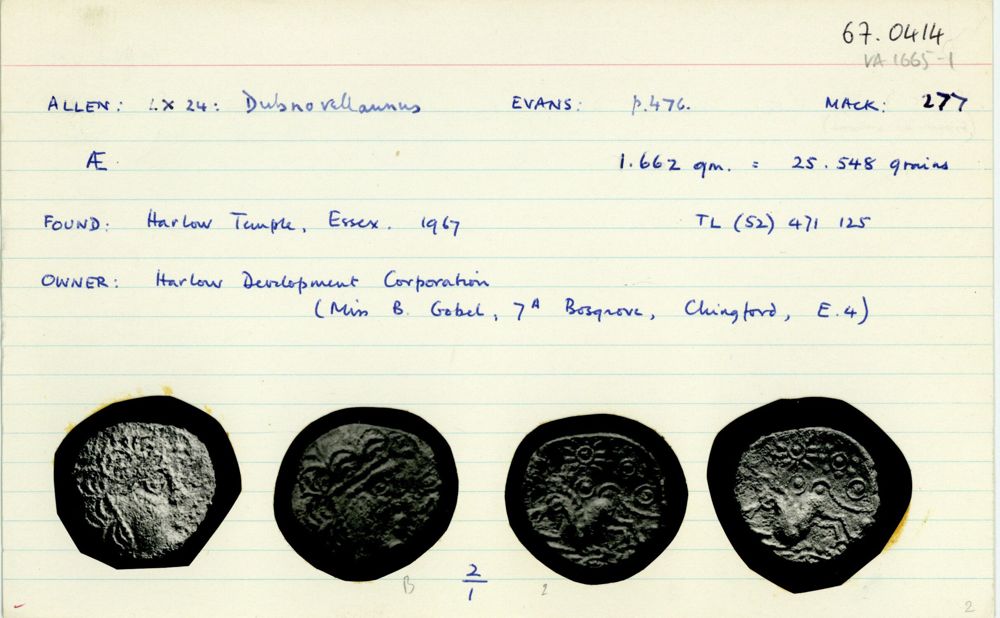 67.0414
VA 1665-1
ALLEN: LX 24: Dubnovellaunus EVANS: p.476. MACK: 277
Æ. 1.662 gm. = 25.548 grains
FOUND: Harlow Temple, Essex. 1967 TL (52) 471 125
OWNER: Harlow Development Corporation
(Miss B. Gobel, 7A Bosgrove, Chingford, E.4)
B 2/1 2
2